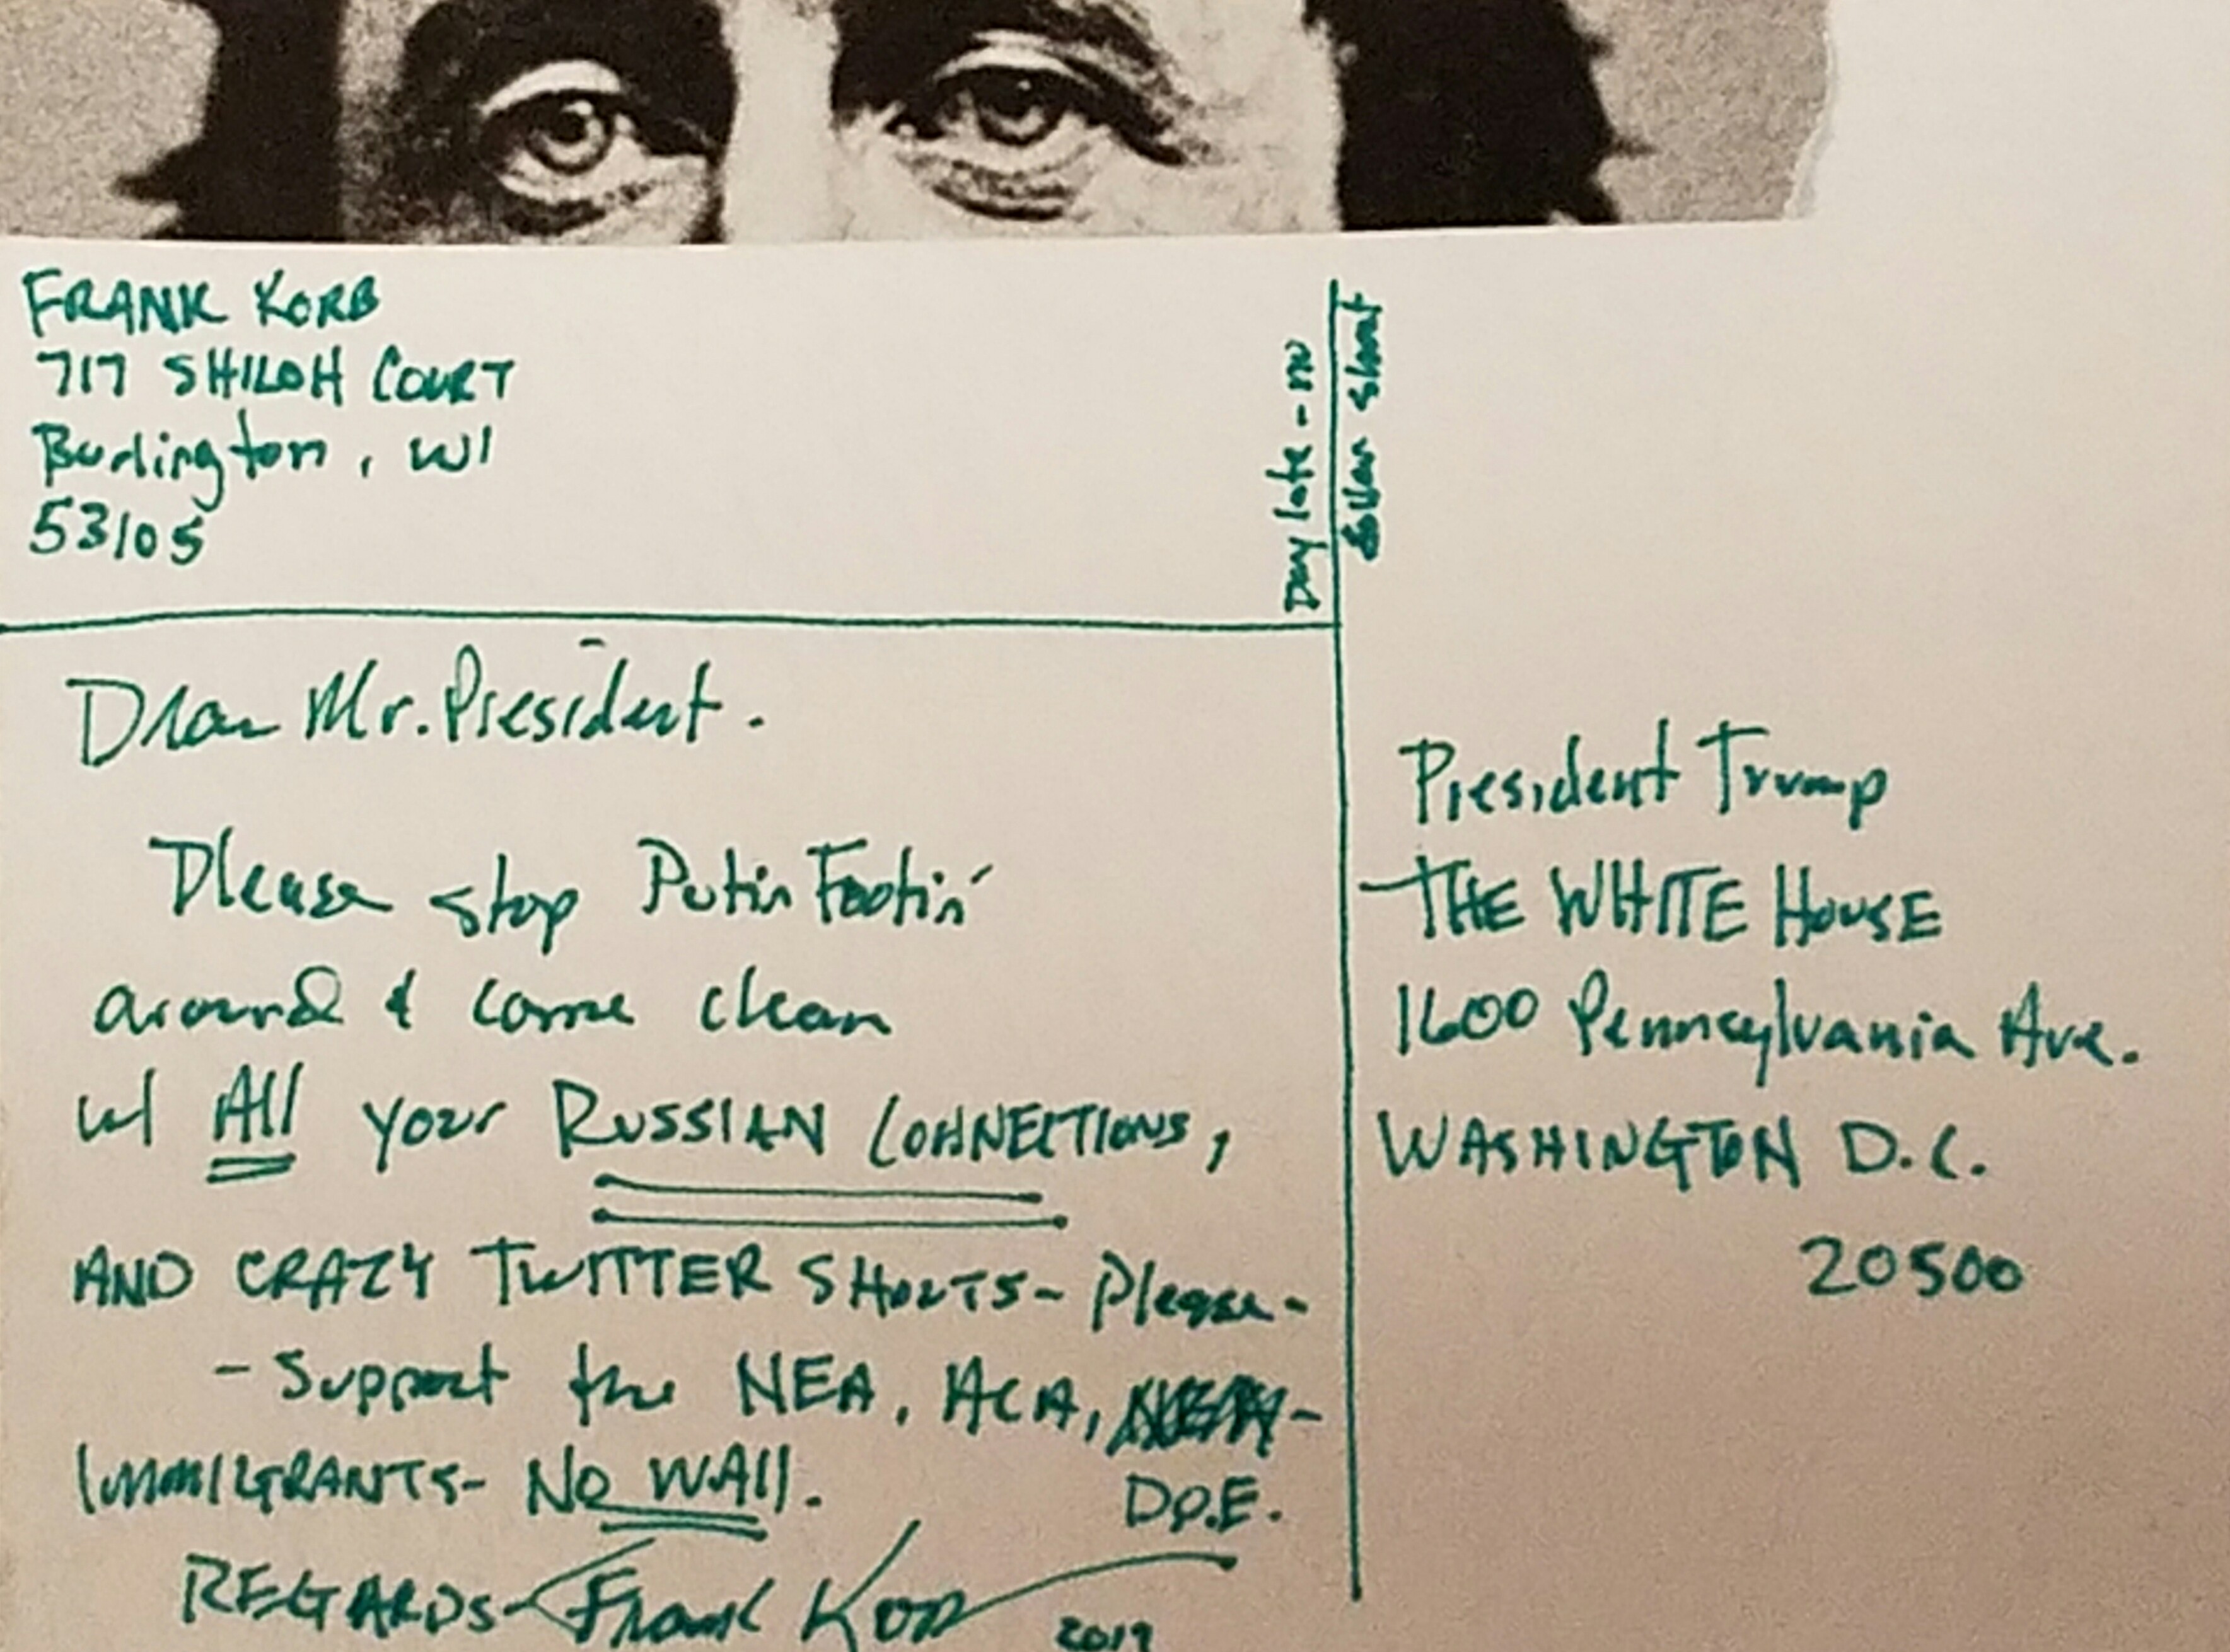 FRANK KORB
717 SHILOH COURT
Burlington, WI
53105
Day late - n
dollar short
Dear Mr. President.
Please stop Putin Footin'
around & come clean
w/ All your RUSSIAN CONNECTIONS,
AND CRAZY TWITTER SHOUTS - Please -
- Support the NEA, ACA,
IMMIGRANTS - NO WAll. D.O.E.
REGARDS - Frank Korb
President Trump
THE WHITE HOUSE
1600 Pennsylvania Ave.
WASHINGTON D.C.
20500